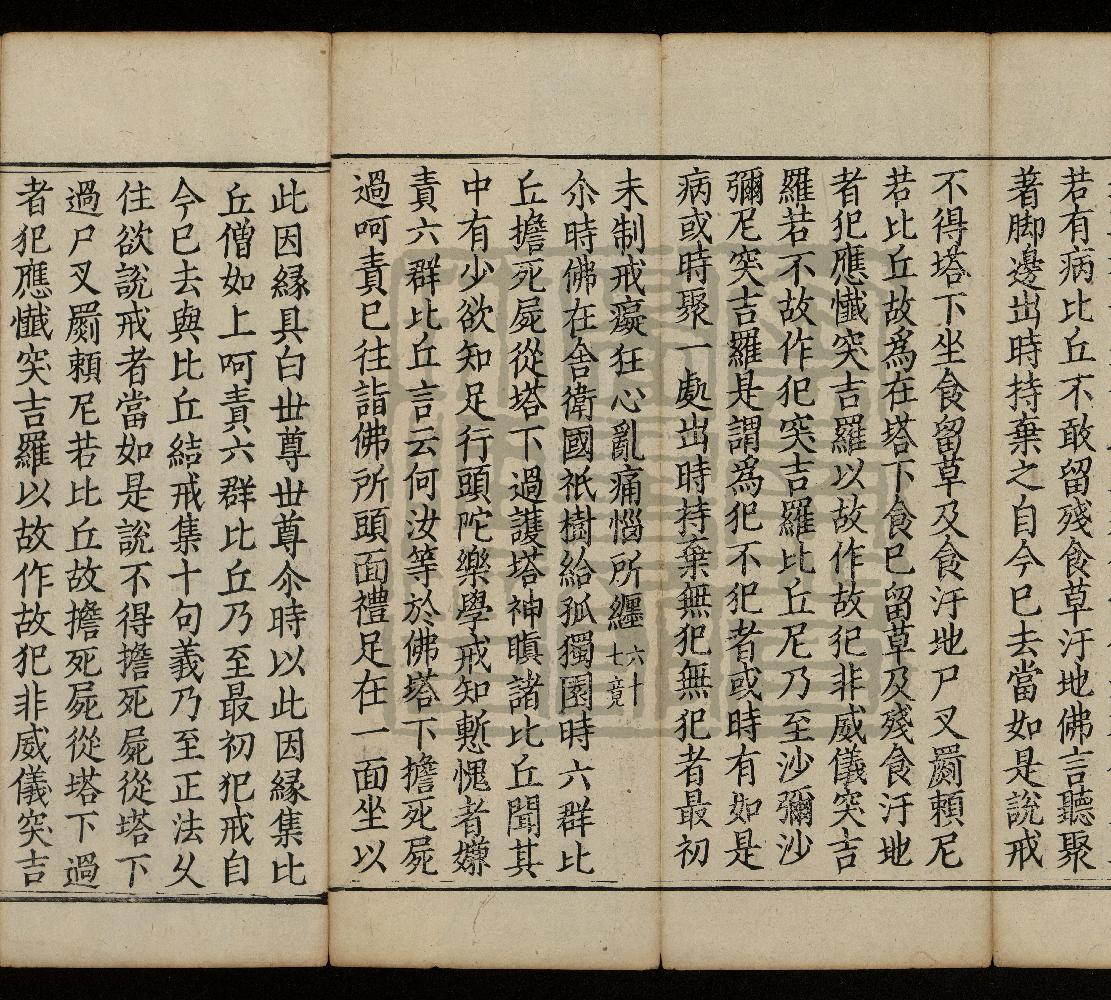 若有病比丘不敢留殘食草汙地佛言聽聚
著脚邊出時持棄之自今已去當如是說戒
不得塔下坐食留草及食汙地尸叉罽賴尼
若比丘故爲在塔下食已留草及殘食汙地
者犯應懺突吉羅以故作故犯非威儀突吉
羅若不故作犯突吉羅比丘尼乃至沙彌沙
彌尼突吉羅是謂爲犯不犯者或時有如是
病或時聚一處出時持棄無犯無犯者最初
未制戒癡狂心亂痛惱所纏六十七竟
尒時佛在舍衛國祇樹給孤獨園時六群比
丘擔死屍從塔下過護塔神瞋諸比丘聞其
中有少欲知足行頭陀樂學戒知慙愧者嫌
責六群比丘言云何汝等於佛塔下擔死屍
過呵責已往詣佛所頭面禮足在一面坐以
此因緣具白世尊世尊尒時以此因緣集比
丘僧如上呵責六群比丘乃至最初犯戒自
今已去與比丘結戒集十句義乃至正法久
住欲說戒者當如是說不得擔死屍從塔下
過尸叉罽賴尼若比丘故擔死屍從塔下過
者犯應懺突吉羅以故作故犯非威儀突吉